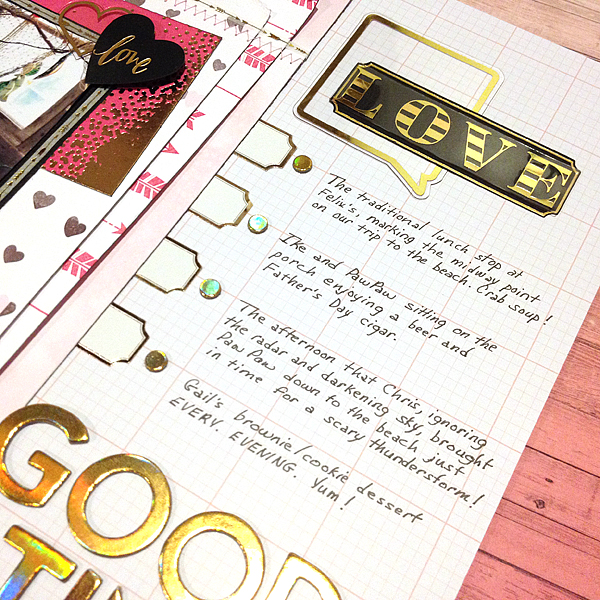 love
LOVE
The traditional lunch stop at
Feliu's, marking the midway point
on our trip to the beach. Crab soup!
Ike and PawPaw sitting on the
porch enjoying a beer and
Father's Day cigar.
The afternoon that Chris, ignoring
the radar and darkening sky, brought
Paw Paw down to the beach just
in time for a scary thunderstorm!
Gail's brownie/cookie dessert
EVERY. EVENING. Yum!
GOOD